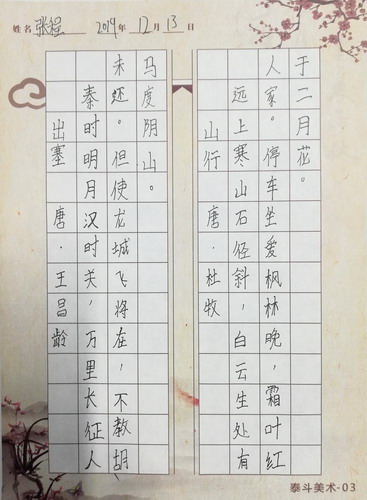 姓名 张程 2019年 12月 13日
出塞 唐·王昌龄
秦时明月汉时关，万里长征人
未还。但使龙城飞将在，不教胡
马度阴山。
山行 唐·杜牧
远上寒山石径斜，白云生处有
人家。停车坐爱枫林晚，霜叶红
于二月花。
泰斗美术-03